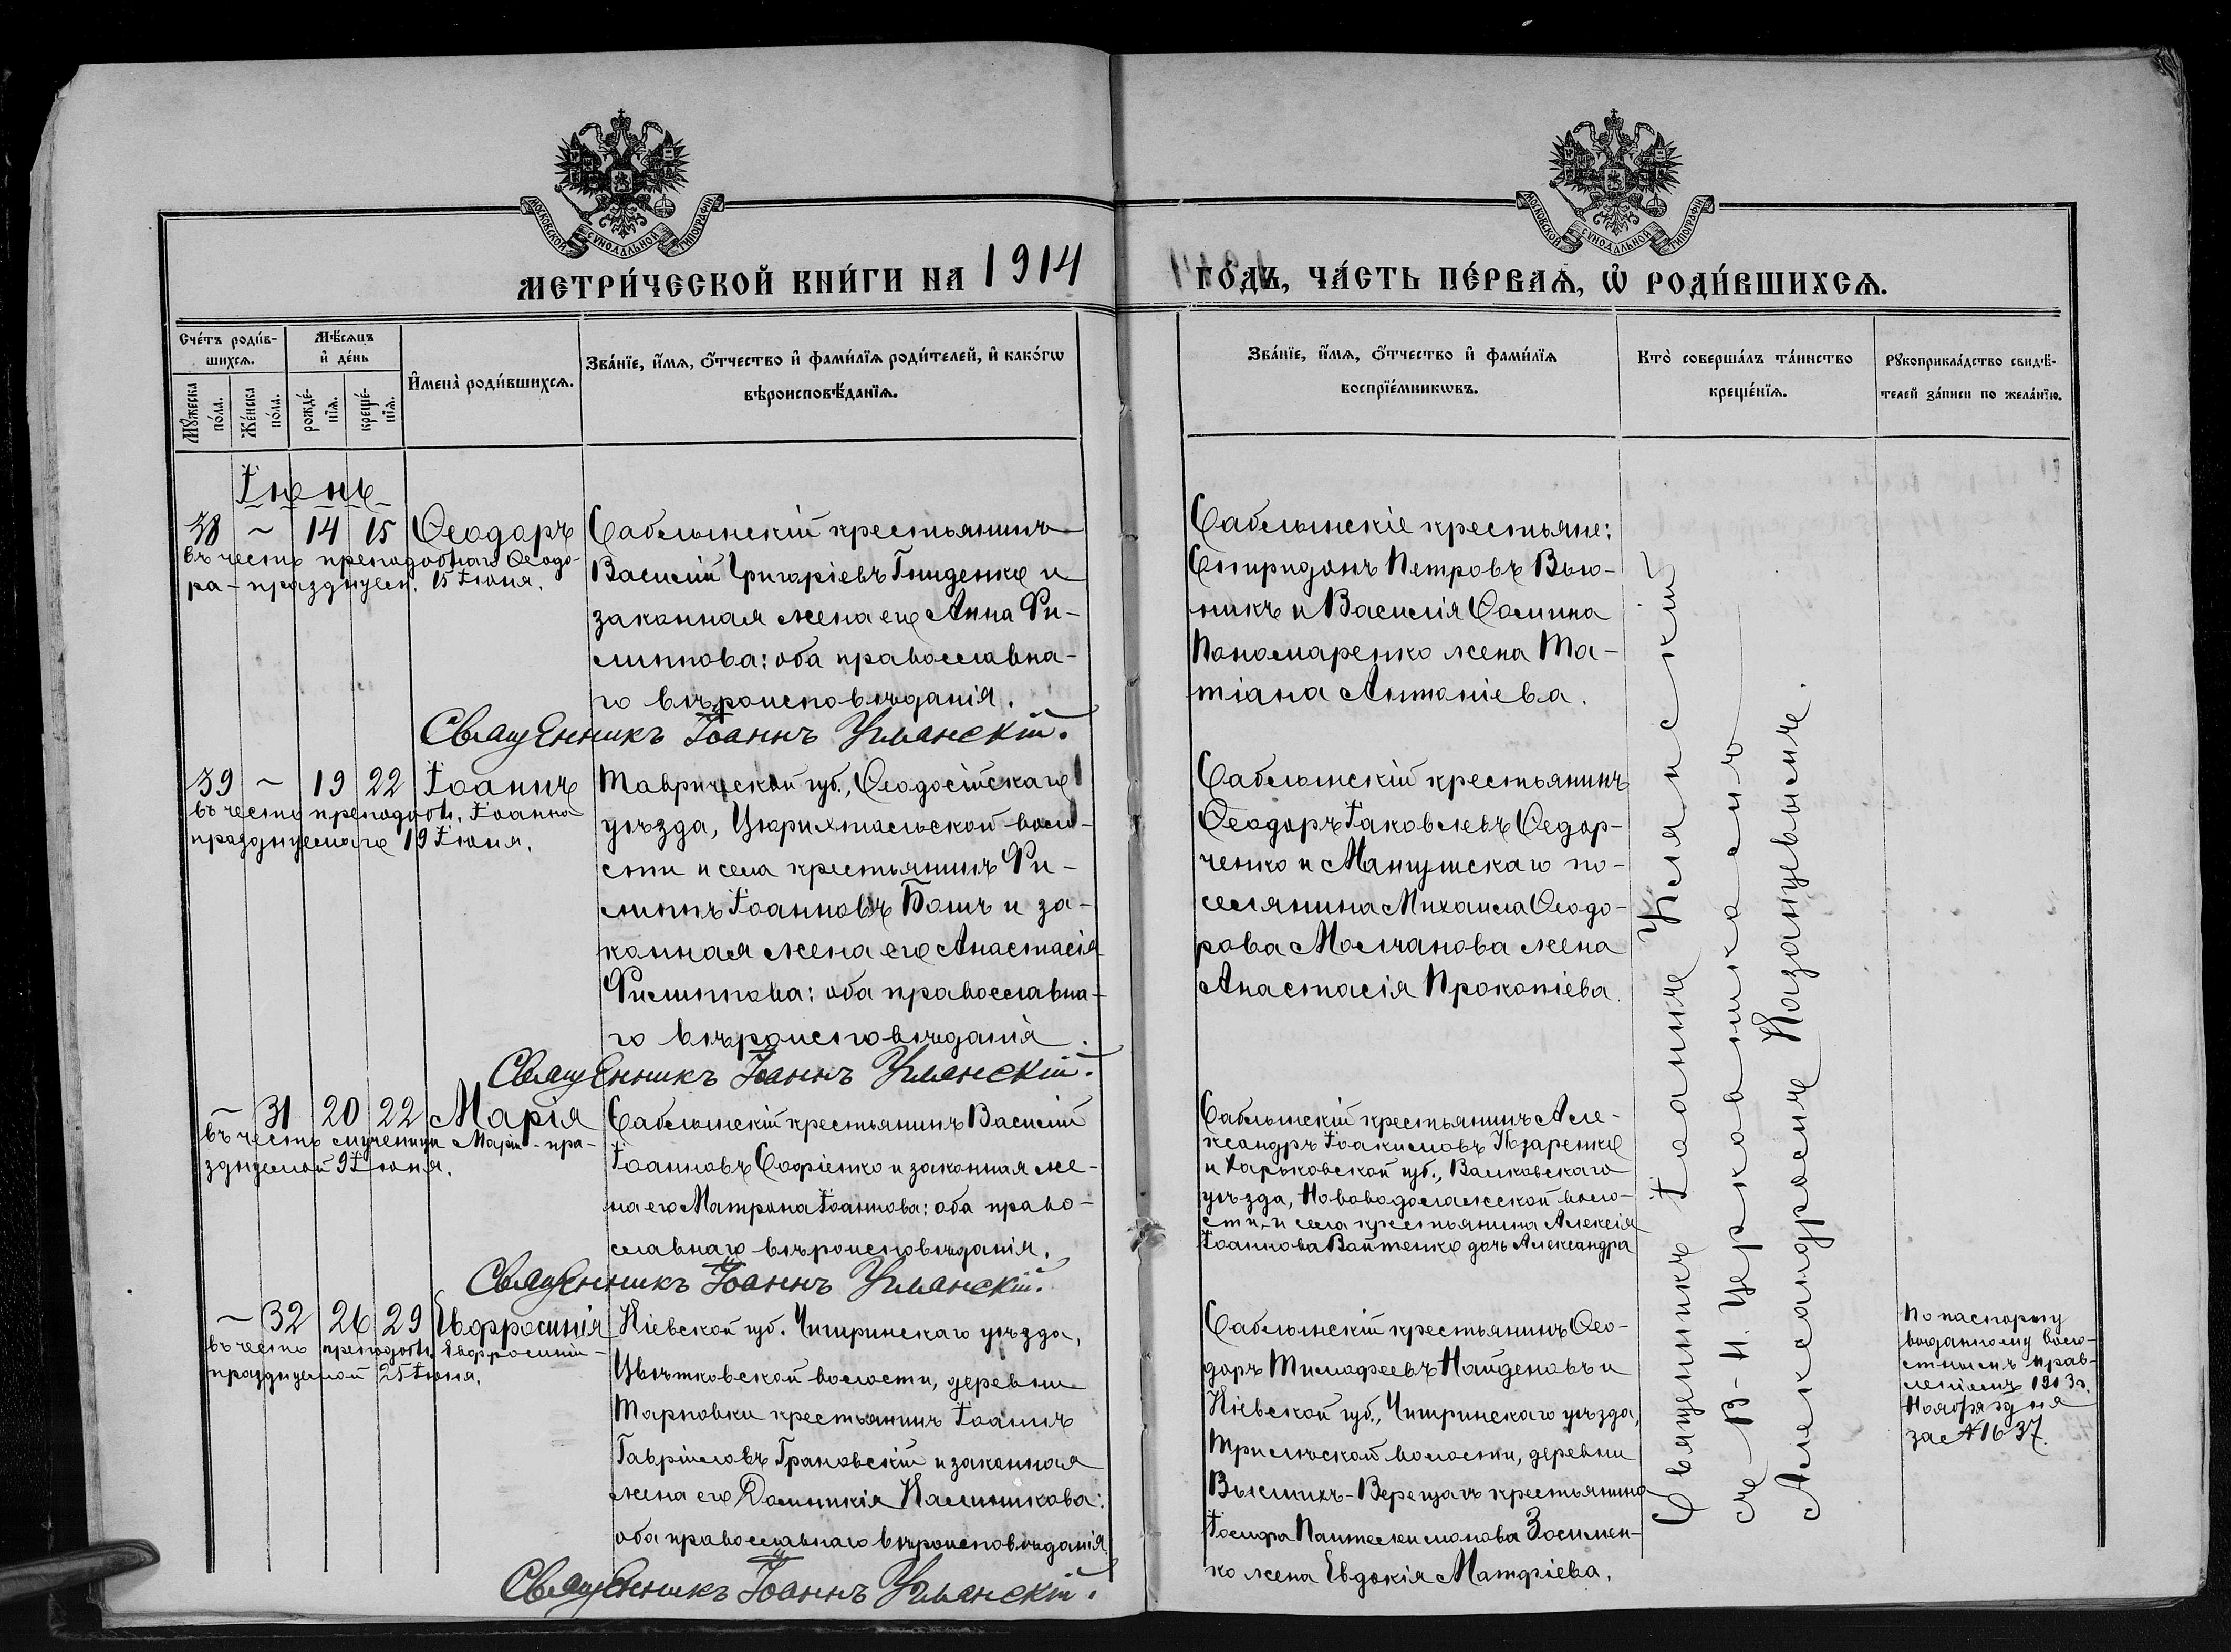 МОСКОВСКОЙ СѴНОДАЛЬНОЙ ТИПОГРАФІИ
МОСКОВСКОЙ СѴНОДАЛЬНОЙ ТИПОГРАФІИ
МЕТРИ́ЧЕСКОЙ КНИ́ГИ НА 1914
ГО́ДЪ, ЧА́СТЬ ПЕ́РВАѦ, Ѡ҆ РОДИ́ВШИХСѦ.
Сче́тъ роди́в-
шихсѧ.
Мꙋ́жеска
по́ла.
Же́нска
по́ла.
Мѣ́сѧцъ
и҆ де́нь
рожде́-
нїѧ.
креще́-
нїѧ.
И҆мена̀ роди́вшихсѧ.
Зва́нїе, и҆́мѧ, ѻ҆́тчество и҆ фами́лїѧ роди́телей, и҆ како́гѡ
вѣроисповѣ́данїѧ.
Зва́нїе, и҆́мѧ, ѻ҆́тчество и҆ фами́лїѧ
воспрїе́мникѡвъ.
Кто̀ соверша́лъ та́инство
креще́нїѧ.
Рꙋкоприкла́дство свидѣ́-
телей за́писи по жела́нїю.
Іюнь
38 ~ 14 15 Ѳеодоръ
въ честь преподобнаго Ѳеодо-
ра - празднуем. 15 Іюня.
Саблынскій крестьянинъ
Василій Григоріевъ Гниденко и
законная жена его Анна Фи-
липпова: оба православна-
го вѣроисповѣданія.
Священникъ Іоаннъ Уманскій.
Саблынскіе крестьяне:
Спиридонъ Петровъ Вью-
никъ и Василія Сомина
Пономаренко жена Та-
тіана Антоніева.
39 ~ 19 22 Іоаннъ
въ честь преподоб. Іоанна
празднуемаго 19 Іюня.
Таврической губ., Ѳеодосійскаго
уѣзда, Цюрихтальской воло-
сти и села крестьянинъ Фи-
липпъ Іоанновъ Бошъ и за-
конная жена его Анастасія
Филиппова: оба православна-
го вѣроисповѣданія.
Священникъ Іоаннъ Уманскій.
Саблынскій крестьянинъ
Ѳеодоръ Іаковлевъ Ѳедор-
ченко и Мангушскаго по-
селянина Михаила Ѳеодо-
рова Молчанова жена
Анастасія Прокопіева.
~ 31 20 22 Марія
въ честь мученицы Маріи - пра-
зднуемой 9 Іюня.
Саблынскій крестьянинъ Василій
Іоанновъ Софіенко и законная же-
на его Матрона Іоаннова: оба право-
славнаго вѣроисповѣданія.
Священникъ Іоаннъ Уманскій.
Саблынскій крестьянинъ Але-
ксандръ Іоакимовъ Козаренко
и Харьковской губ., Валковскаго
уѣзда, Нововодолажской воло-
сти, и села крестьянина Алексія
Іоаннова Войтенко дочь Александра
~ 32 26 29 Евфросинія
въ честь преподоб. Евфросиніи -
празднуемой 25 Іюня.
Кіевской губ. Чигринскаго уѣзда,
Цвѣтковской волости, деревни
Тарновки крестьянинъ Іоаннъ
Гавріиловъ Грановскій и законная
жена его Домникія Калинникова:
оба православнаго вѣроисповѣданія.
Священникъ Іоаннъ Уманскій.
Саблынскій крестьянинъ Ѳео-
доръ Тимоѳеевъ Найденовъ и
Кіевской губ., Чигринскаго уѣзда,
Трилѣской волости, деревни
Вышихъ-Верещакъ крестьянина
Іосифа Пантелеимонова Зосимен-
ко жена Евдокія Матфіева.
Священникъ Іоаннъ Уманскій
съ В-И. Церковникомъ
Александромъ Казанцевымъ.
По паспорту
выданному воло-
стнымъ прав-
леніемъ 1913 г.
Ноября дня
за № 1637.